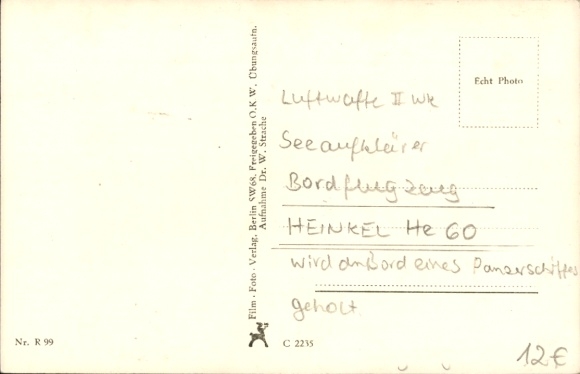 Echt Photo
Luftwaffe II WK
Seeaufklärer
Bordflugzeug
HEINKEL He 60
wird an Bord eines Panzerschiffes
geholt.
Film-Foto-Verlag, Berlin SW68, Freigegeben O.K.W., Übungsaufn.
Aufnahme Dr. W. Strache
Nr. R 99
C 2235
12€